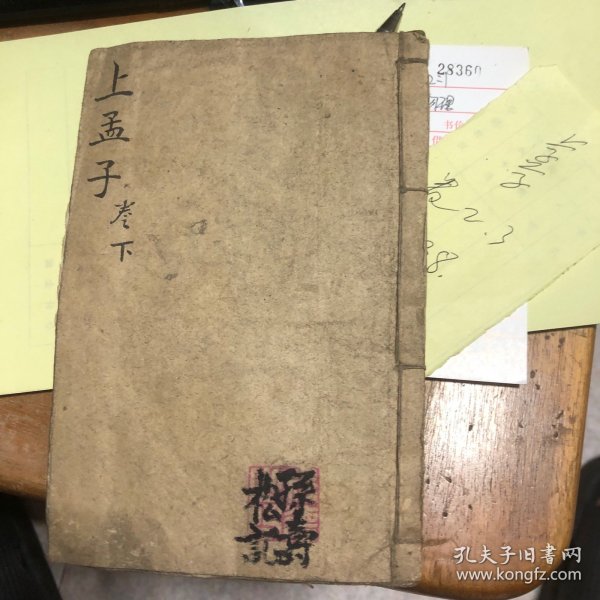 上孟子
卷下
孫壽
松記
28360
书价
卷2.3
38.
孔夫子旧书网
www.kongfz.com